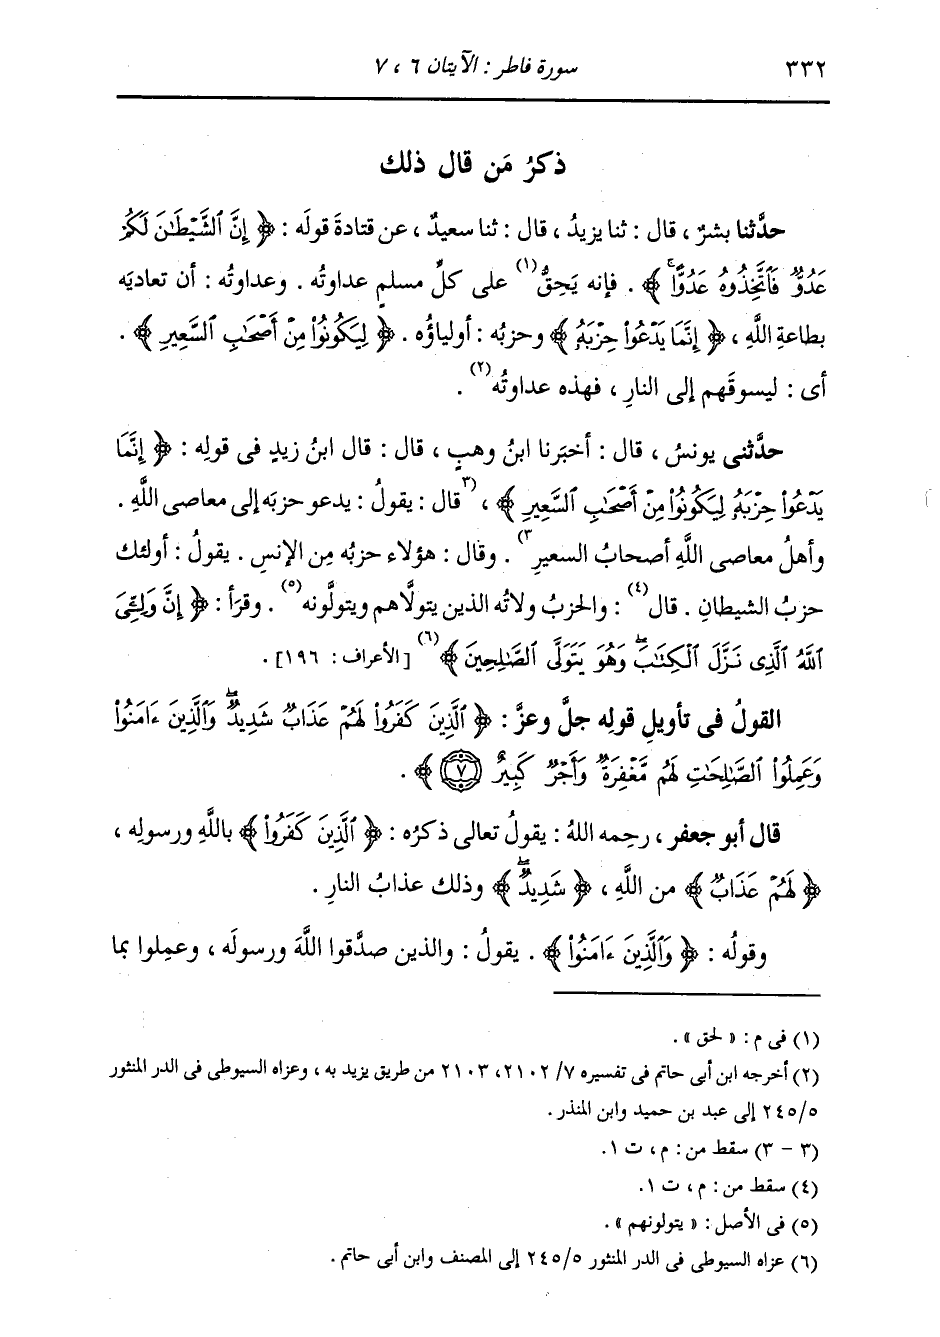 ٣٣٢ سورة فاطر : الآيتان ٦ ، ٧
ذكرُ مَن قال ذلك
حدَّثنا بشرٌ ، قال : ثنا يزيدُ ، قال : ثنا سعيدٌ ، عن قتادةَ قولَه : ﴿ إِنَّ ٱلشَّيْطَٰنَ لَكُمْ
عَدُوٌّ فَٱتَّخِذُوهُ عَدُوًّاۚ ﴾ . فإنه يَحِقُّ(١) على كلِّ مسلمٍ عداوتُه . وعداوتُه : أن تعاديَه
بطاعةِ اللَّهِ ، ﴿ إِنَّمَا يَدْعُوا۟ حِزْبَهُۥ ﴾ وحزبُه : أولياؤُه . ﴿ لِيَكُونُوا۟ مِنْ أَصْحَٰبِ ٱلسَّعِيرِ ﴾ .
أى : ليسوقَهم إلى النارِ ، فهذه عداوتُه(٢) .
حدَّثنى يونسُ ، قال : أخبَرنا ابنُ وهبٍ ، قال : قال ابنُ زيدٍ فى قولِه : ﴿ إِنَّمَا
يَدْعُوا۟ حِزْبَهُۥ لِيَكُونُوا۟ مِنْ أَصْحَٰبِ ٱلسَّعِيرِ ﴾ ، (٣قال : يقولُ : يدعو حزبَه إلى معاصى اللَّهِ .
وأهلُ معاصى اللَّهِ أصحابُ السعيرِ٣) . وقال : هؤلاء حزبُه مِن الإنسِ . يقولُ : أولئك
حزبُ الشيطانِ . قال(٤) : والحزبُ ولاتُه الذين يتولَّاهم ويتولَّونه(٥) . وقرَأ : ﴿ إِنَّ وَلِـِّۧىَ
ٱللَّهُ ٱلَّذِى نَزَّلَ ٱلْكِتَٰبَۖ وَهُوَ يَتَوَلَّى ٱلصَّٰلِحِينَ ﴾(٦) [الأعراف : ١٩٦] .
القولُ فى تأويلِ قولِه جلَّ وعزَّ : ﴿ ٱلَّذِينَ كَفَرُوا۟ لَهُمْ عَذَابٌ شَدِيدٌۖ وَٱلَّذِينَ ءَامَنُوا۟
وَعَمِلُوا۟ ٱلصَّٰلِحَٰتِ لَهُم مَّغْفِرَةٌ وَأَجْرٌ كَبِيرٌ ٧ ﴾ .
قال أبو جعفر ، رحِمه اللهُ : يقولُ تعالى ذكرُه : ﴿ ٱلَّذِينَ كَفَرُوا۟ ﴾ باللَّهِ ورسولِه ،
﴿ لَهُمْ عَذَابٌ ﴾ من اللَّهِ ، ﴿ شَدِيدٌۖ ﴾ وذلك عذابُ النارِ .
وقولُه : ﴿ وَٱلَّذِينَ ءَامَنُوا۟ ﴾ . يقولُ : والذين صدَّقوا اللَّهَ ورسولَه ، وعمِلوا بما
(١) فى م : « لحق » .
(٢) أخرجه ابن أبى حاتم فى تفسيره ٧/ ٢١٠٢، ٢١٠٣ من طريق يزيد به ، وعزاه السيوطى فى الدر المنثور
٢٤٥/٥ إلى عبد بن حميد وابن المنذر .
(٣ - ٣) سقط من : م ، ت ١.
(٤) سقط من : م ، ت ١.
(٥) فى الأصل : « يتولونهم » .
(٦) عزاه السيوطى فى الدر المنثور ٢٤٥/٥ إلى المصنف وابن أبى حاتم .